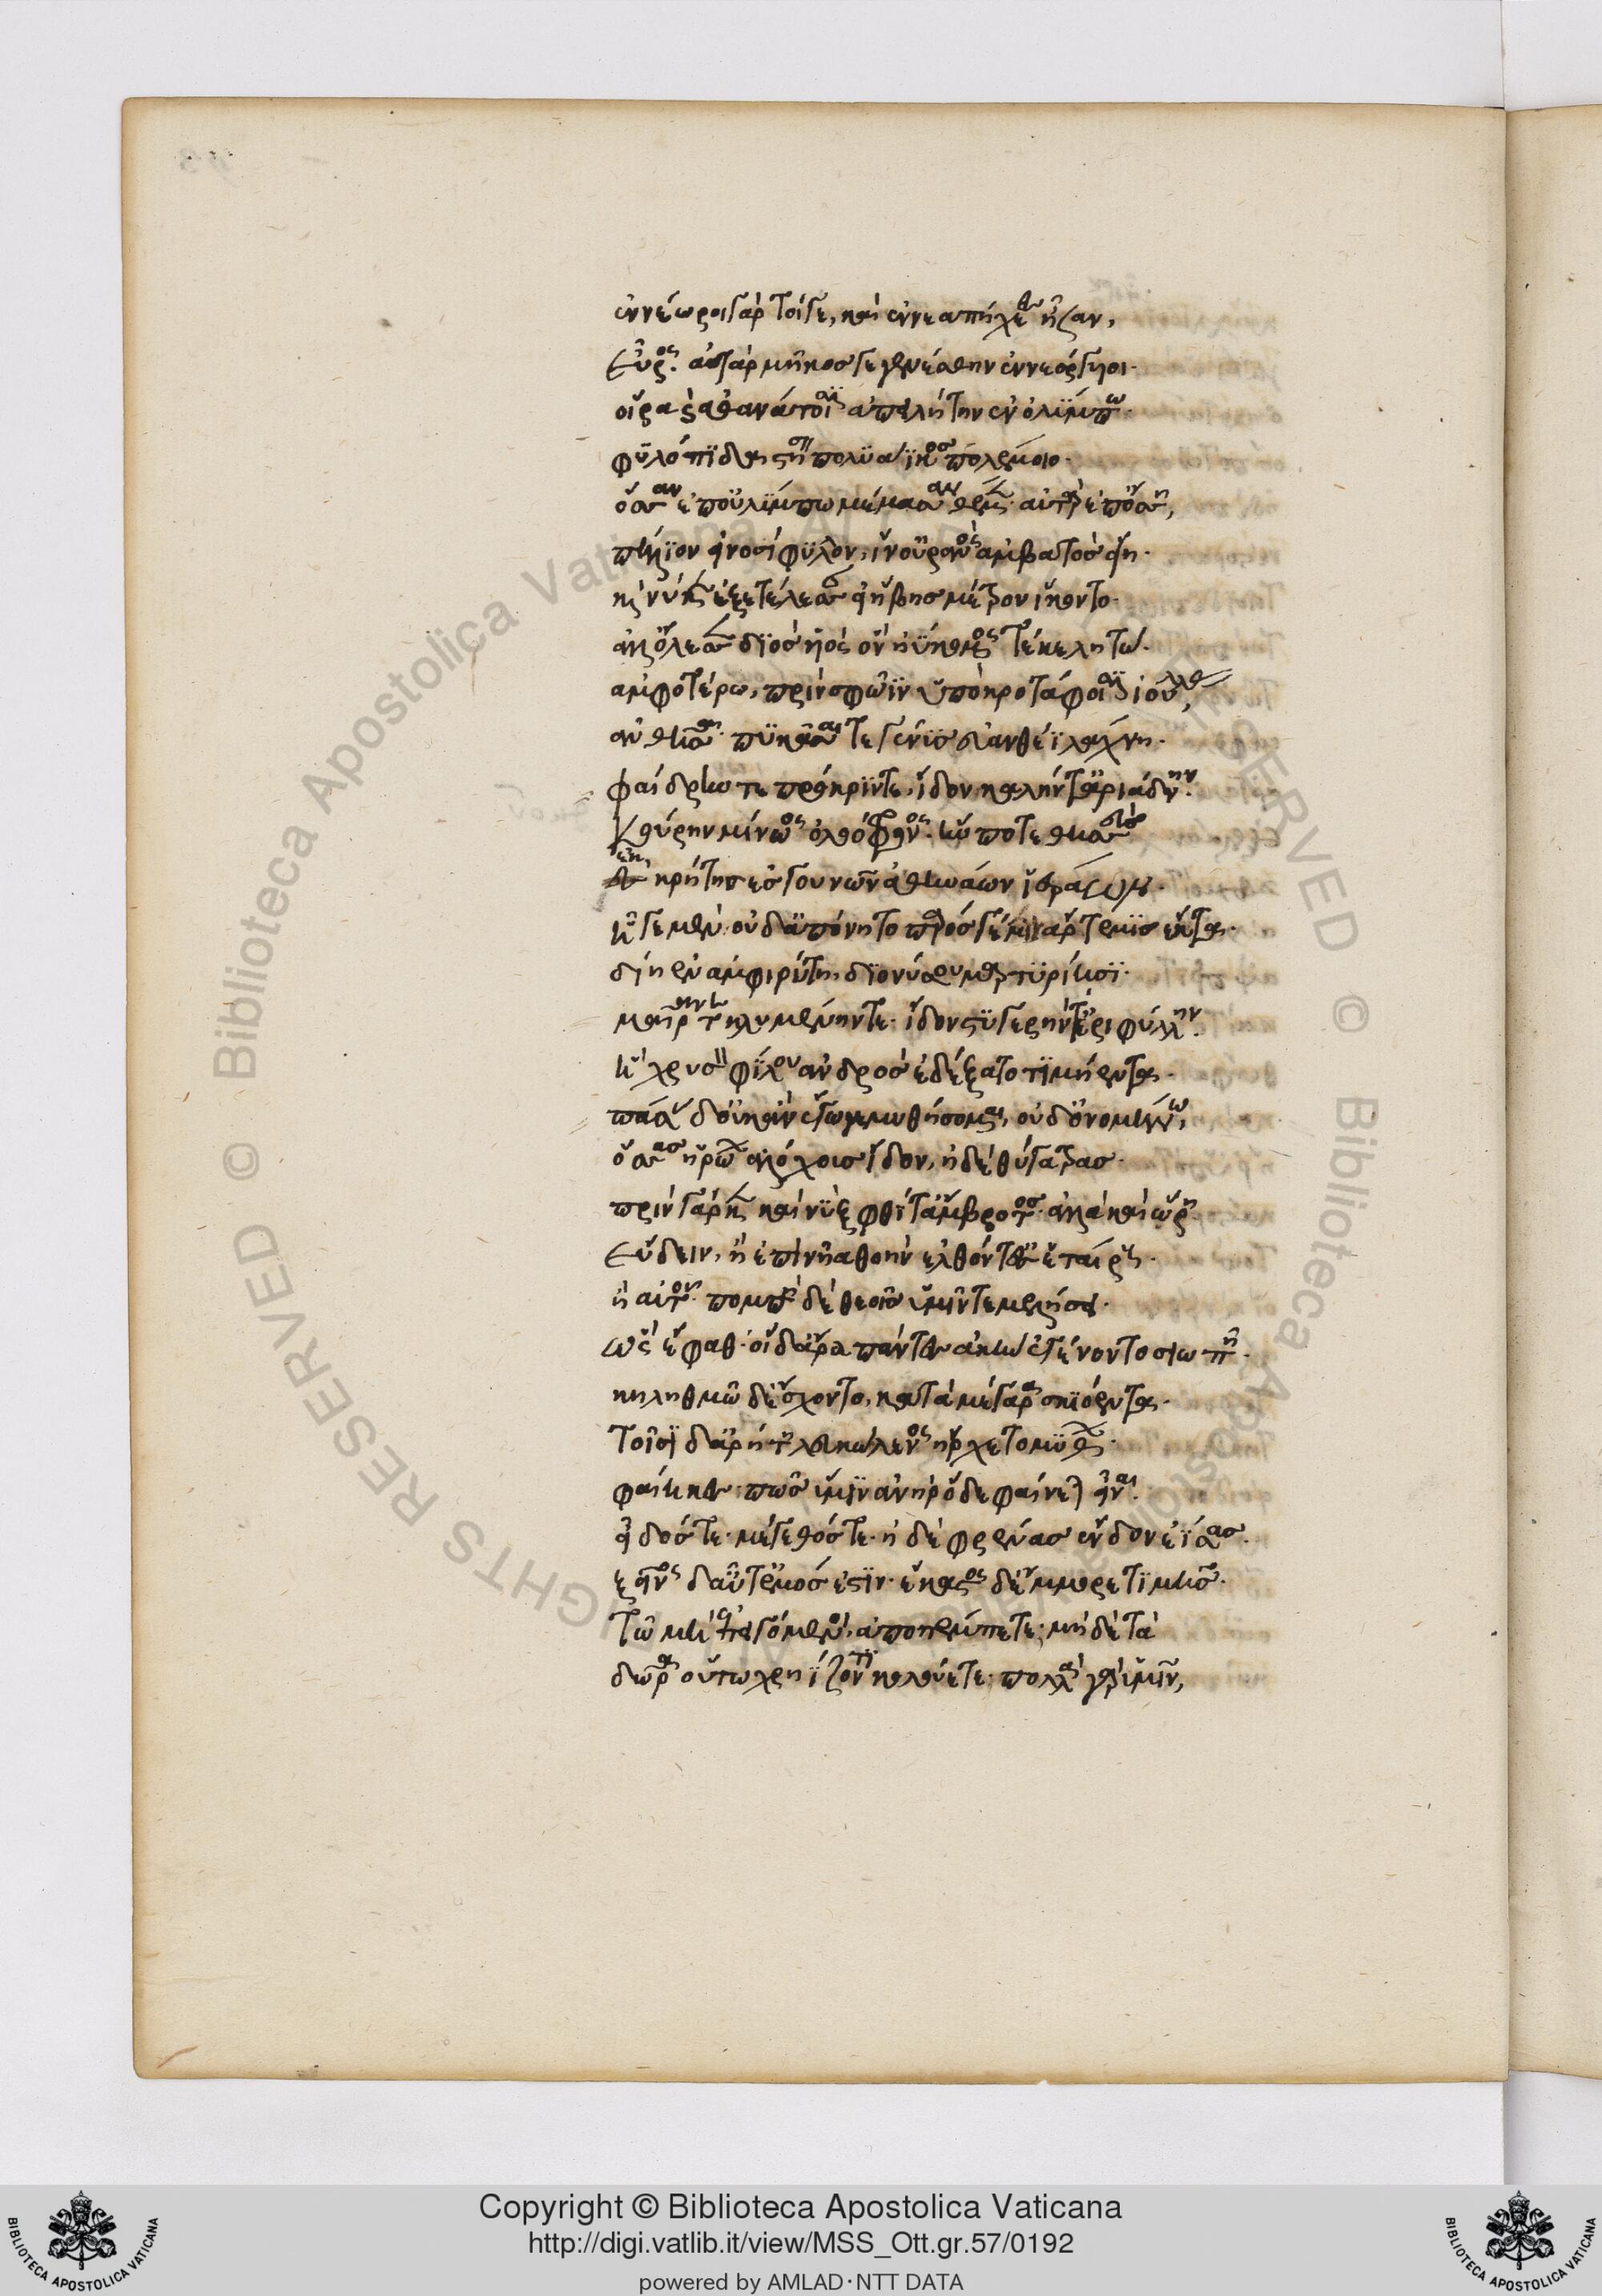 ἐννέωροι γὰρ τοίγε, καὶ ἐννεαπήχεες ἦσαν,
εὖρος. ἀτὰρ μῆκος γε γενέσθην ἐννεόργυιοι.
οἵ ρα καὶ ἀθανάτοισιν ἀπειλήτην ἐν ὀλύμπω.
φυλόπιδα στήσειν πολυάϊκος πολέμοιο.
ὄσσαν ἐπ' οὐλύμπω μέμασαν θέμεν. αὐτὰρ ἐπ' ὄσση,
πήλιον εἰνοσίφυλλον, ἵν' οὐρανὸς ἀμβατὸς εἴη.
καί νύ κεν ἐξετέλεσσαν εἰ ἥβης μέτρον ἵκοντο.
ἀλλ' ὄλεσεν διὸς υἱὸς ὃν ἠΰκομος τέκε λητώ.
ἀμφοτέρω, πρίν σφωϊν ὑπὸ κροτάφοισιν ἰούλους,
ἀνθῆσαι. πυκάσαι τε γένυς εὐανθέϊ λάχνη.
φαίδρην τε πρόκριν τε, ἴδον καλήν τ' ἀριάδνην.
κούρην μίνωος ὀλοόφρονος. ἥν ποτε θησεὺς
ἐκ κρήτης ἐς γουνὸν ἀθηνάων ἱεράων.
ἦγε μὲν οὐδ' ἀπόνητο πάρος δέ μιν ἄρτεμις ἔκτα.
δίη ἐν ἀμφιρύτη διονύσου μαρτυρίησι.
μαῖράν τε κλυμένην τε. ἴδον στυγερήν τ' ἐριφύλην.
ἣ χρυσὸν φίλου ἀνδρὸς ἐδέξατο τιμήεντα.
πάσας δ' οὐκ ἂν ἐγὼ μυθήσομαι, οὐδ' ὀνομήνω,
ὅσσας ἡρώων ἀλόχους ἴδον, ἠδὲ θύγατρας.
πρὶν γάρ κεν καὶ νὺξ φθῖτ' ἄμβροτος. ἀλλὰ καὶ ὥρη
εὕδειν, ἢ ἐπὶ νῆα θοὴν ἐλθόντ' ἐς ἑταίρους.
ἢ αὐτοῦ. πομπὴ δὲ θεοῖς ὑμῖν τε μελήσει.
ὣς ἔφαθ' οἱ δ' ἄρα πάντες ἀκὴν ἐγένοντο σιωπῆ.
κηληθμῶ δ' ἔσχοντο, κατὰ μέγαρα σκιόεντα.
τοῖσι δ' ἀρήτη λευκώλενος ἤρχετο μύθων.
φαίηκες πῶς ὕμιν ἀνὴρ ὅδε φαίνεται εἶναι.
εἶδός τε μέγεθός τε. ἠδὲ φρένας ἔνδον ἐΐσας.
ξεῖνος δ' αὖτ' ἐμός ἐστιν. ἕκαστος δ' ἔμμορε τιμῆς.
τῶ μὴ ἐπειγόμενοι ἀποπέμπετε. μὴ δὲ τὰ
δῶρα οὕτω χρηΐζοντι κολούετε. πολλὰ γὰρ ὑμῖν,
Copyright © Biblioteca Apostolica Vaticana
http://digi.vatlib.it/view/MSS_Ott.gr.57/0192
powered by AMLAD·NTT DATA